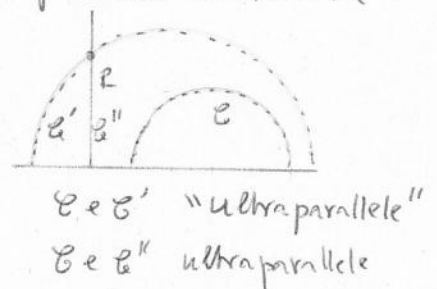 R
𝒞' 𝒞'' 𝒞
𝒞 e 𝒞' "ultraparallele"
𝒞 e 𝒞'' ultraparallele